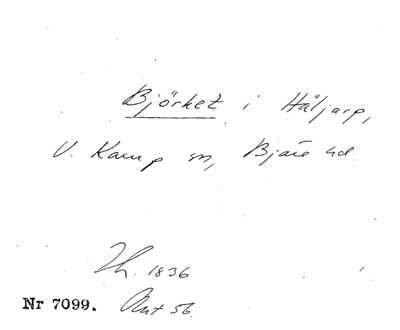 Björket i Häljarp,
V. Karup sn, Bjäre hd.
Th. 1836
Nr 7099. Ant 56.